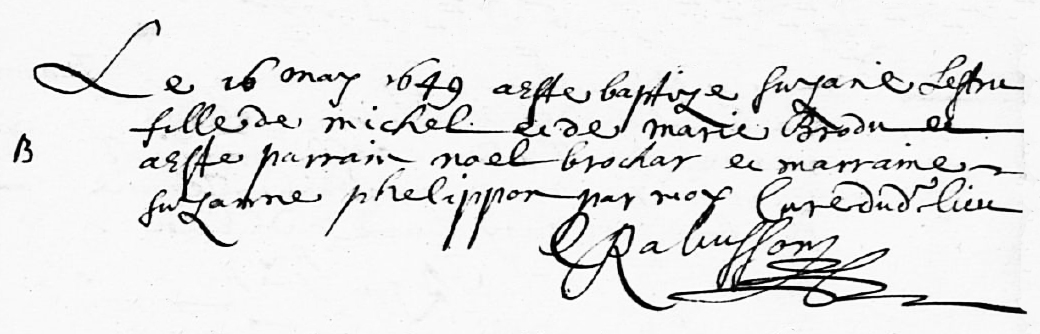 Le 16 may 1649 a este baptize suzane Lestru
fille de michel et de marie Brodu et
B a este parrain noel brochar et marraine
suzanne phelippon par moy Cure dud. lieu
Rabusson